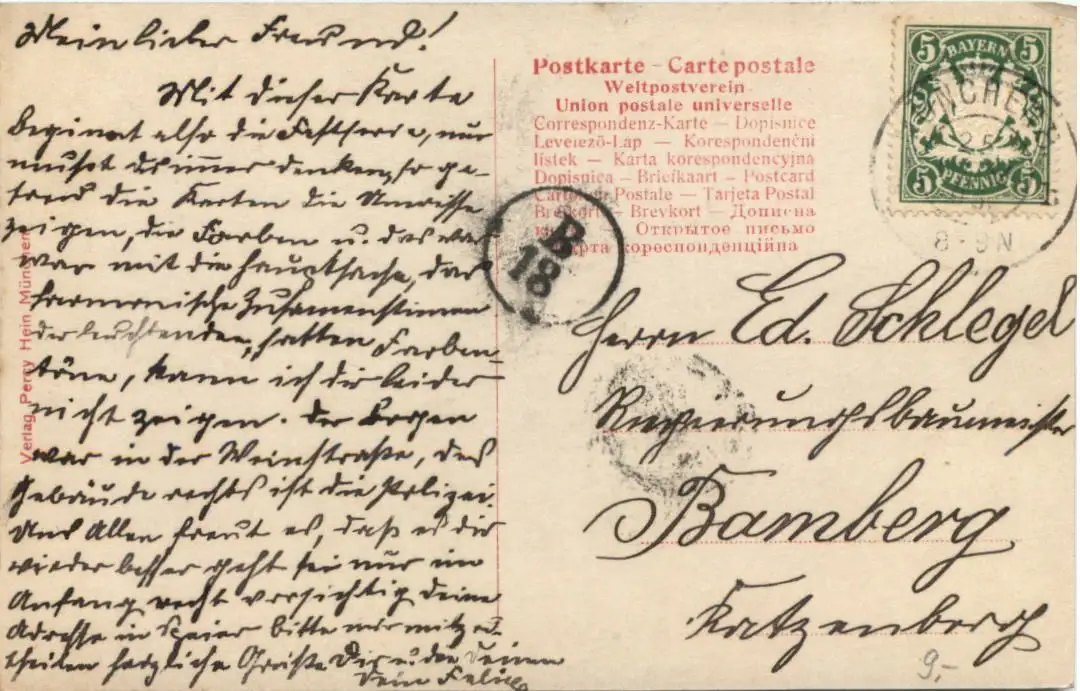 Mein lieber Freund!
Mit dieser Karte
beginnt also die Festserie, nur
mußt du immer denken, so ge-
treu die Karten die Umrisse
zeigen, die Farben u. das war
war mit die Hauptsache, das
harmonische Zusamenstimen
der leuchtenden, satten Farben
töne, kann ich dir leider
nicht zeigen. Der Bogen
war in der Weinstraße, das
Gebäude rechts ist die Polizei.
Uns Allen freut es, daß es dir
wieder besser geht sei nur im
Anfang recht vorsichtig deine
Adresse in Speier bitte mir mitzu-
theilen herzliche Grüße Dir u. den Deinen
Dein Felix
Verlag Percy Hein München
Postkarte - Carte postale
Weltpostverein
Union postale universelle
Correspondenz-Karte — Dopisnice
Levelező-Lap — Korespondenční
lístek — Karta korespondencyjna
Dopisnica — Briefkaart — Postcard
Postale — Tarjeta Postal
Brefkort — Brevkort — Дописна
Открытое письмо
карта кореспонденційна
B
18
5 BAYERN 5
5 PFENNIG 5
8-9 N
Herrn Ed. Schlegel
Regierungsbaumeister
Bamberg
Katzenberg
9,-